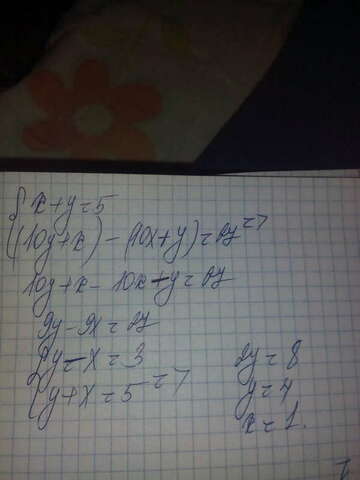 { x + y = 5
(10y + x) - (10x + y) = 27 =>
10y + x - 10x - y = 27
9y - 9x = 27
{ y - x = 3
y + x = 5 =>
2y = 8
y = 4
x = 1.